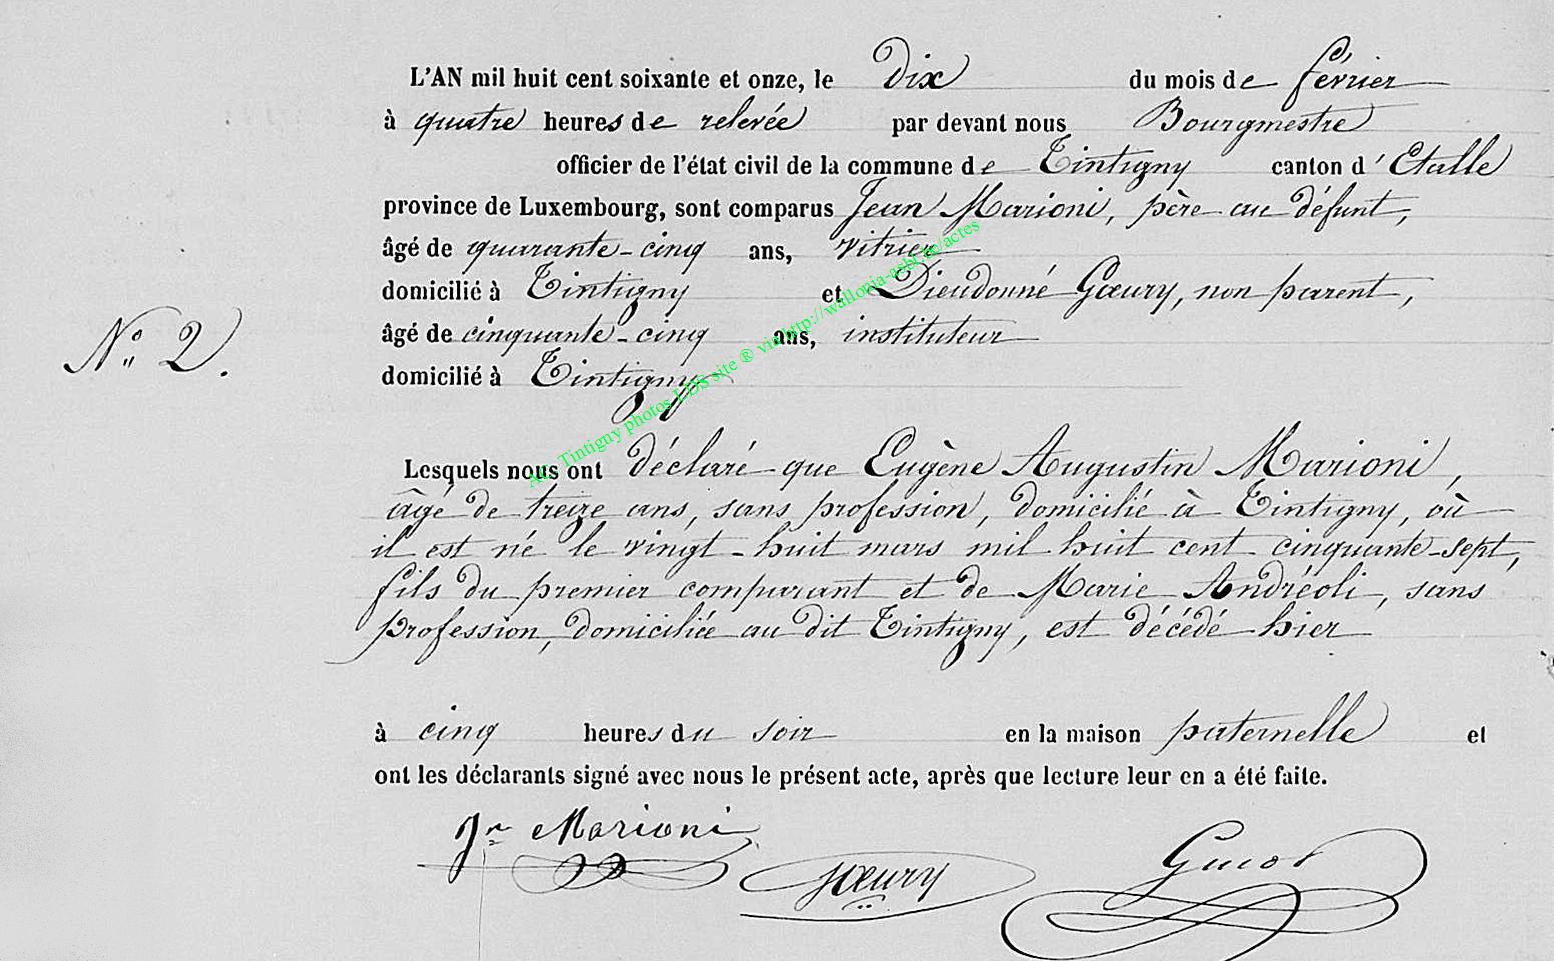 L'AN mil huit cent soixante et onze, le dix du mois de février
à quatre heures de relevée par devant nous Bourgmestre
officier de l'état civil de la commune de Tintigny canton d' Etalle
province de Luxembourg, sont comparus Jean Marioni, père au défunt,
âgé de quarante-cinq ans, vitrier
domicilié à Tintigny et Dieudonné Gœury, non parent,
âgé de cinquante-cinq ans, instituteur
domicilié à Tintigny
N° 2.
Lesquels nous ont déclaré que Eugène Augustin Marioni,
âgé de treize ans, sans profession, domicilié à Tintigny, où
il est né le vingt-huit mars mil huit cent cinquante-sept,
fils du premier comparant et de Marie Andréoli, sans
profession, domiciliée au dit Tintigny, est décédé hier
à cinq heures du soir en la maison paternelle et
ont les déclarants signé avec nous le présent acte, après que lecture leur en a été faite.
Jn Marioni
Gœury
Tintigny photos LDS site ® via http://wallonia-asbl.be/actes